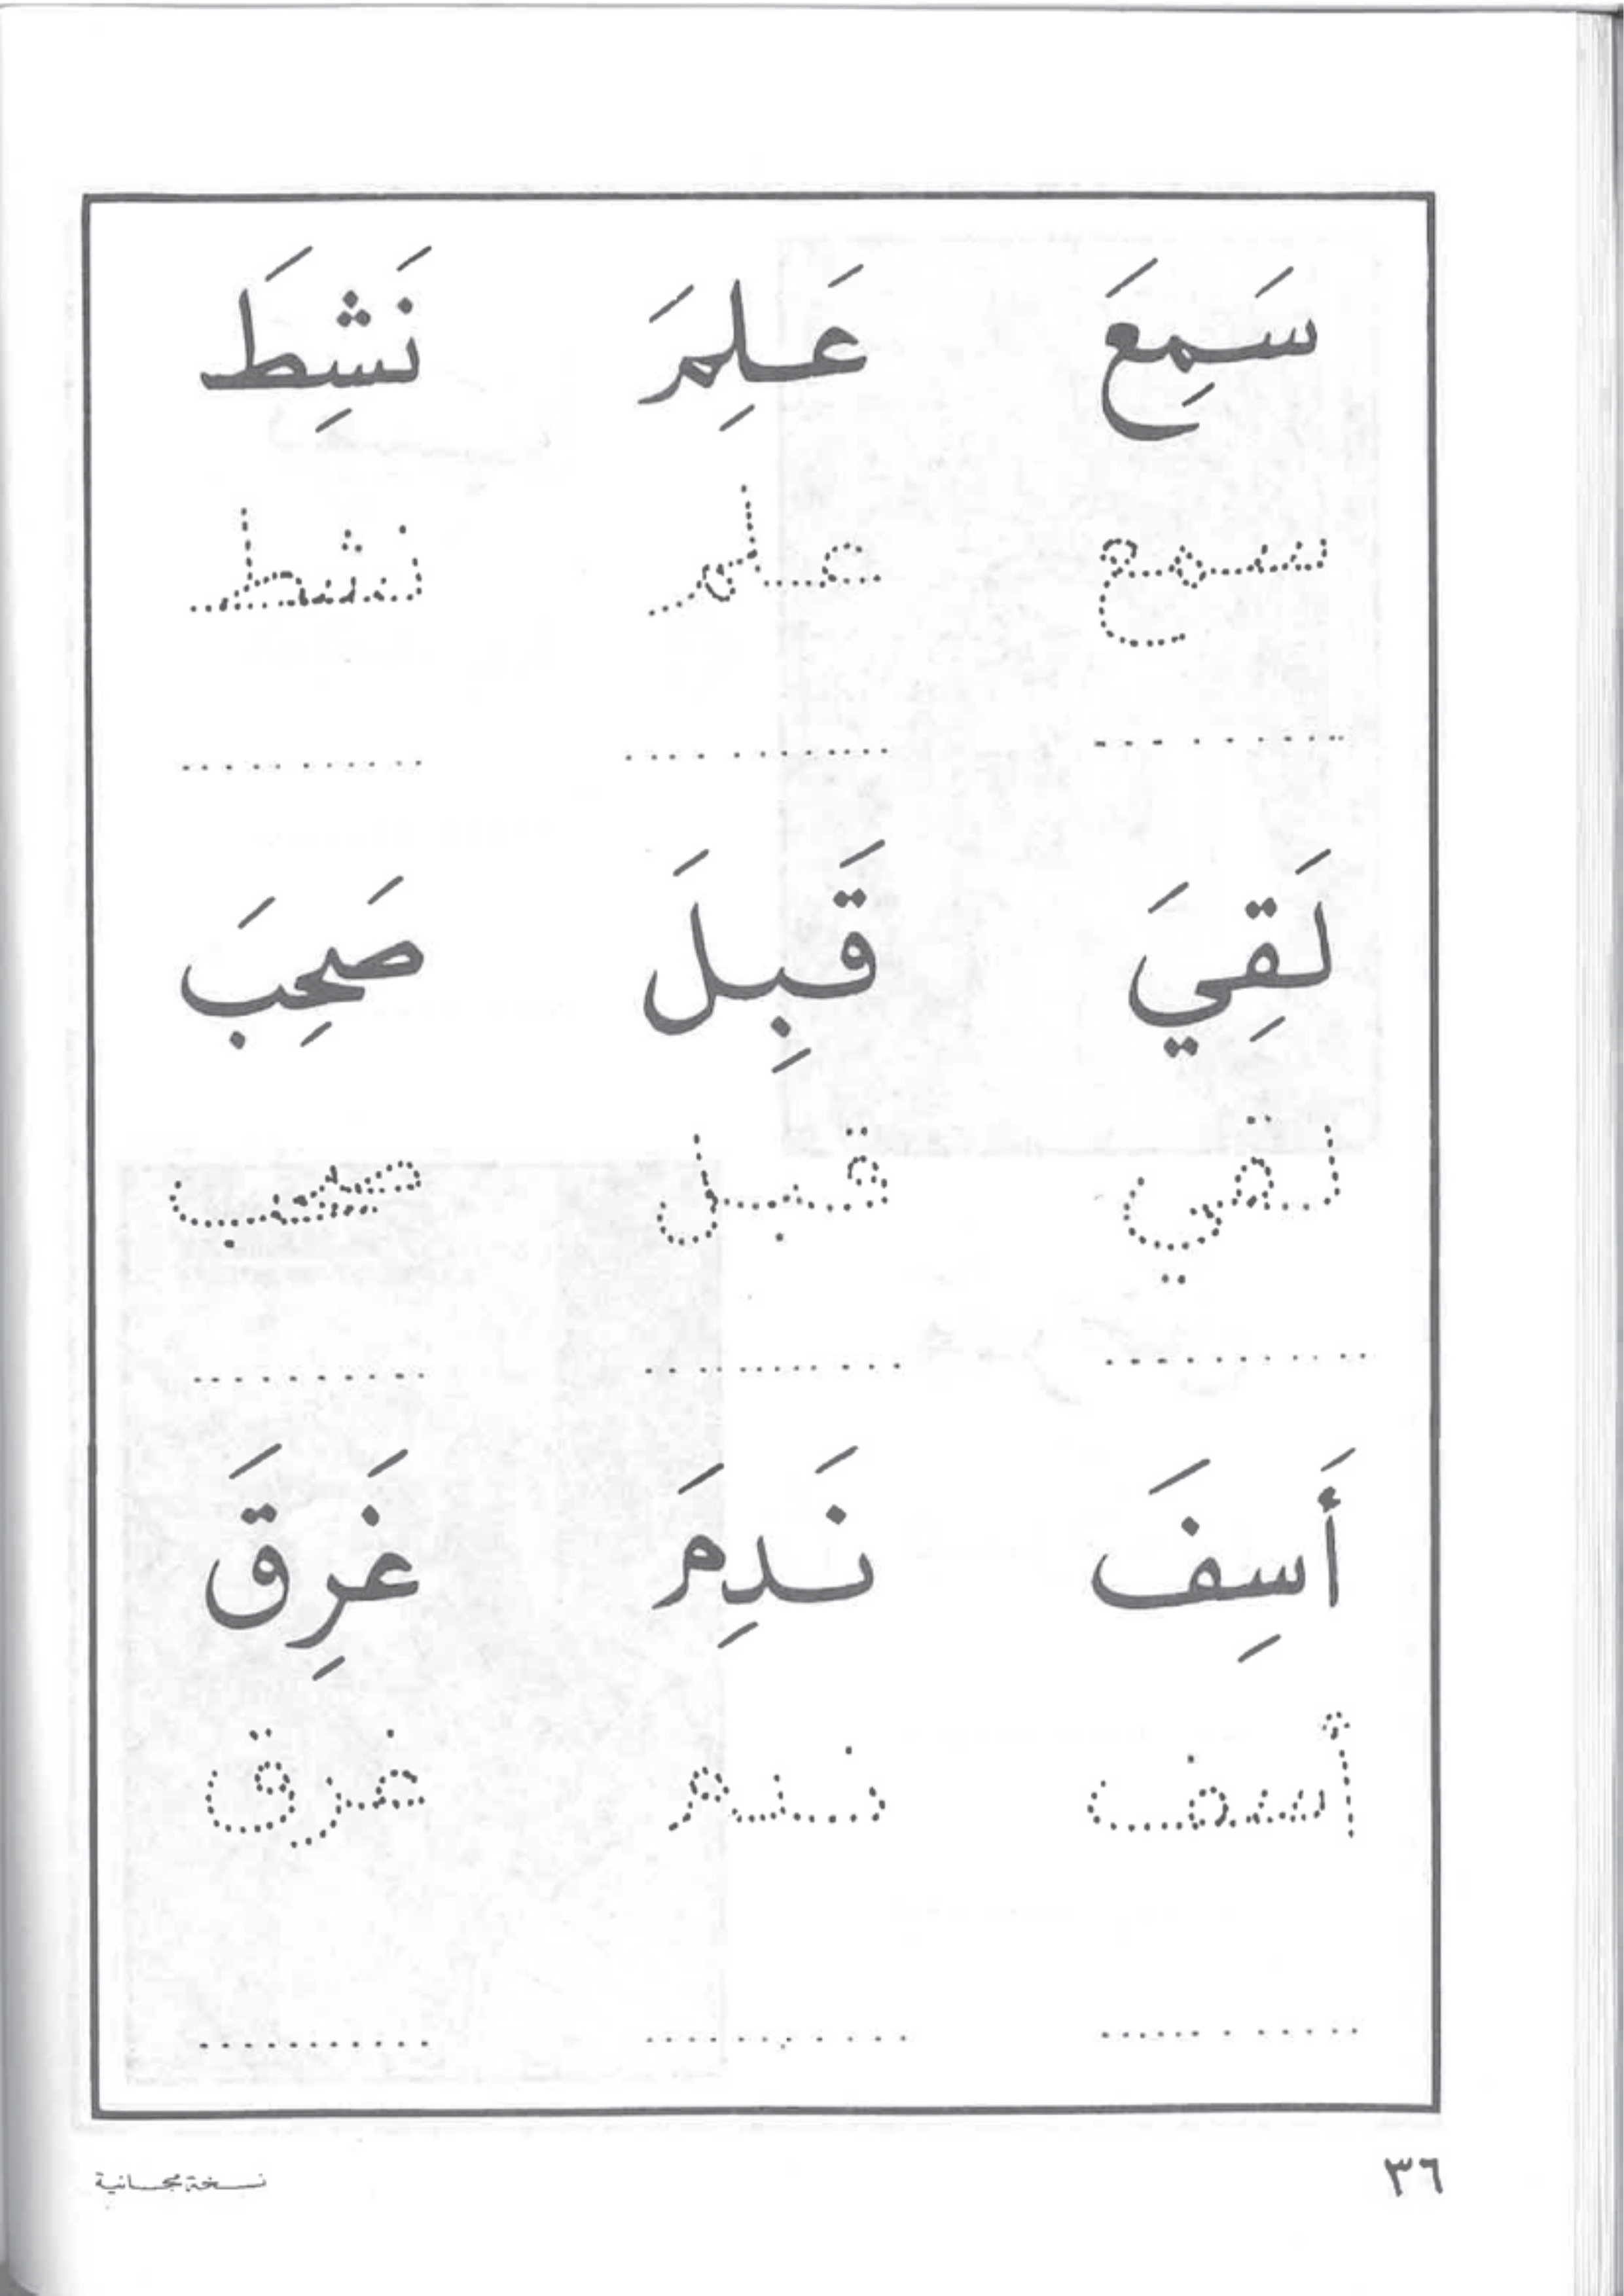 سَمِعَ عَلِمَ نَشِطَ
سمع علم نشط
لَقِيَ قَبِلَ صَحِبَ
لقي قبل صحب
أَسِفَ نَدِمَ غَرِقَ
أسف ندم غرق
٣٦
نسخة مجانية